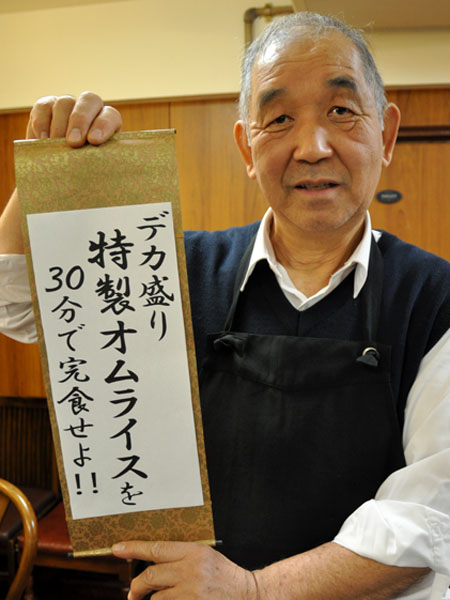 デカ盛り
特製オムライスを
30分で完食せよ!!